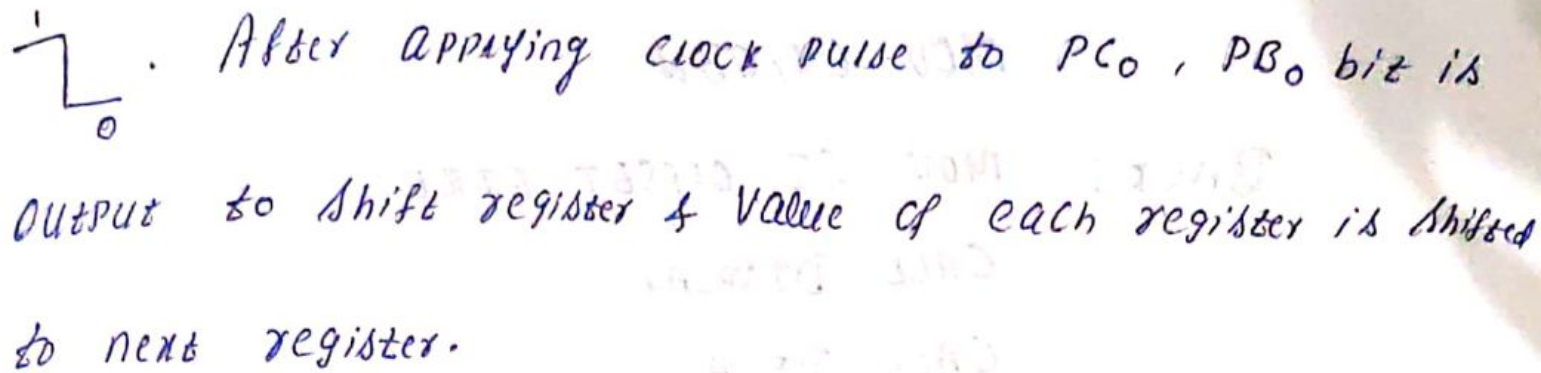 1
. After applying clock pulse to PC0, PB0 bit is
0
output to shift register & value of each register is shifted
to next register.